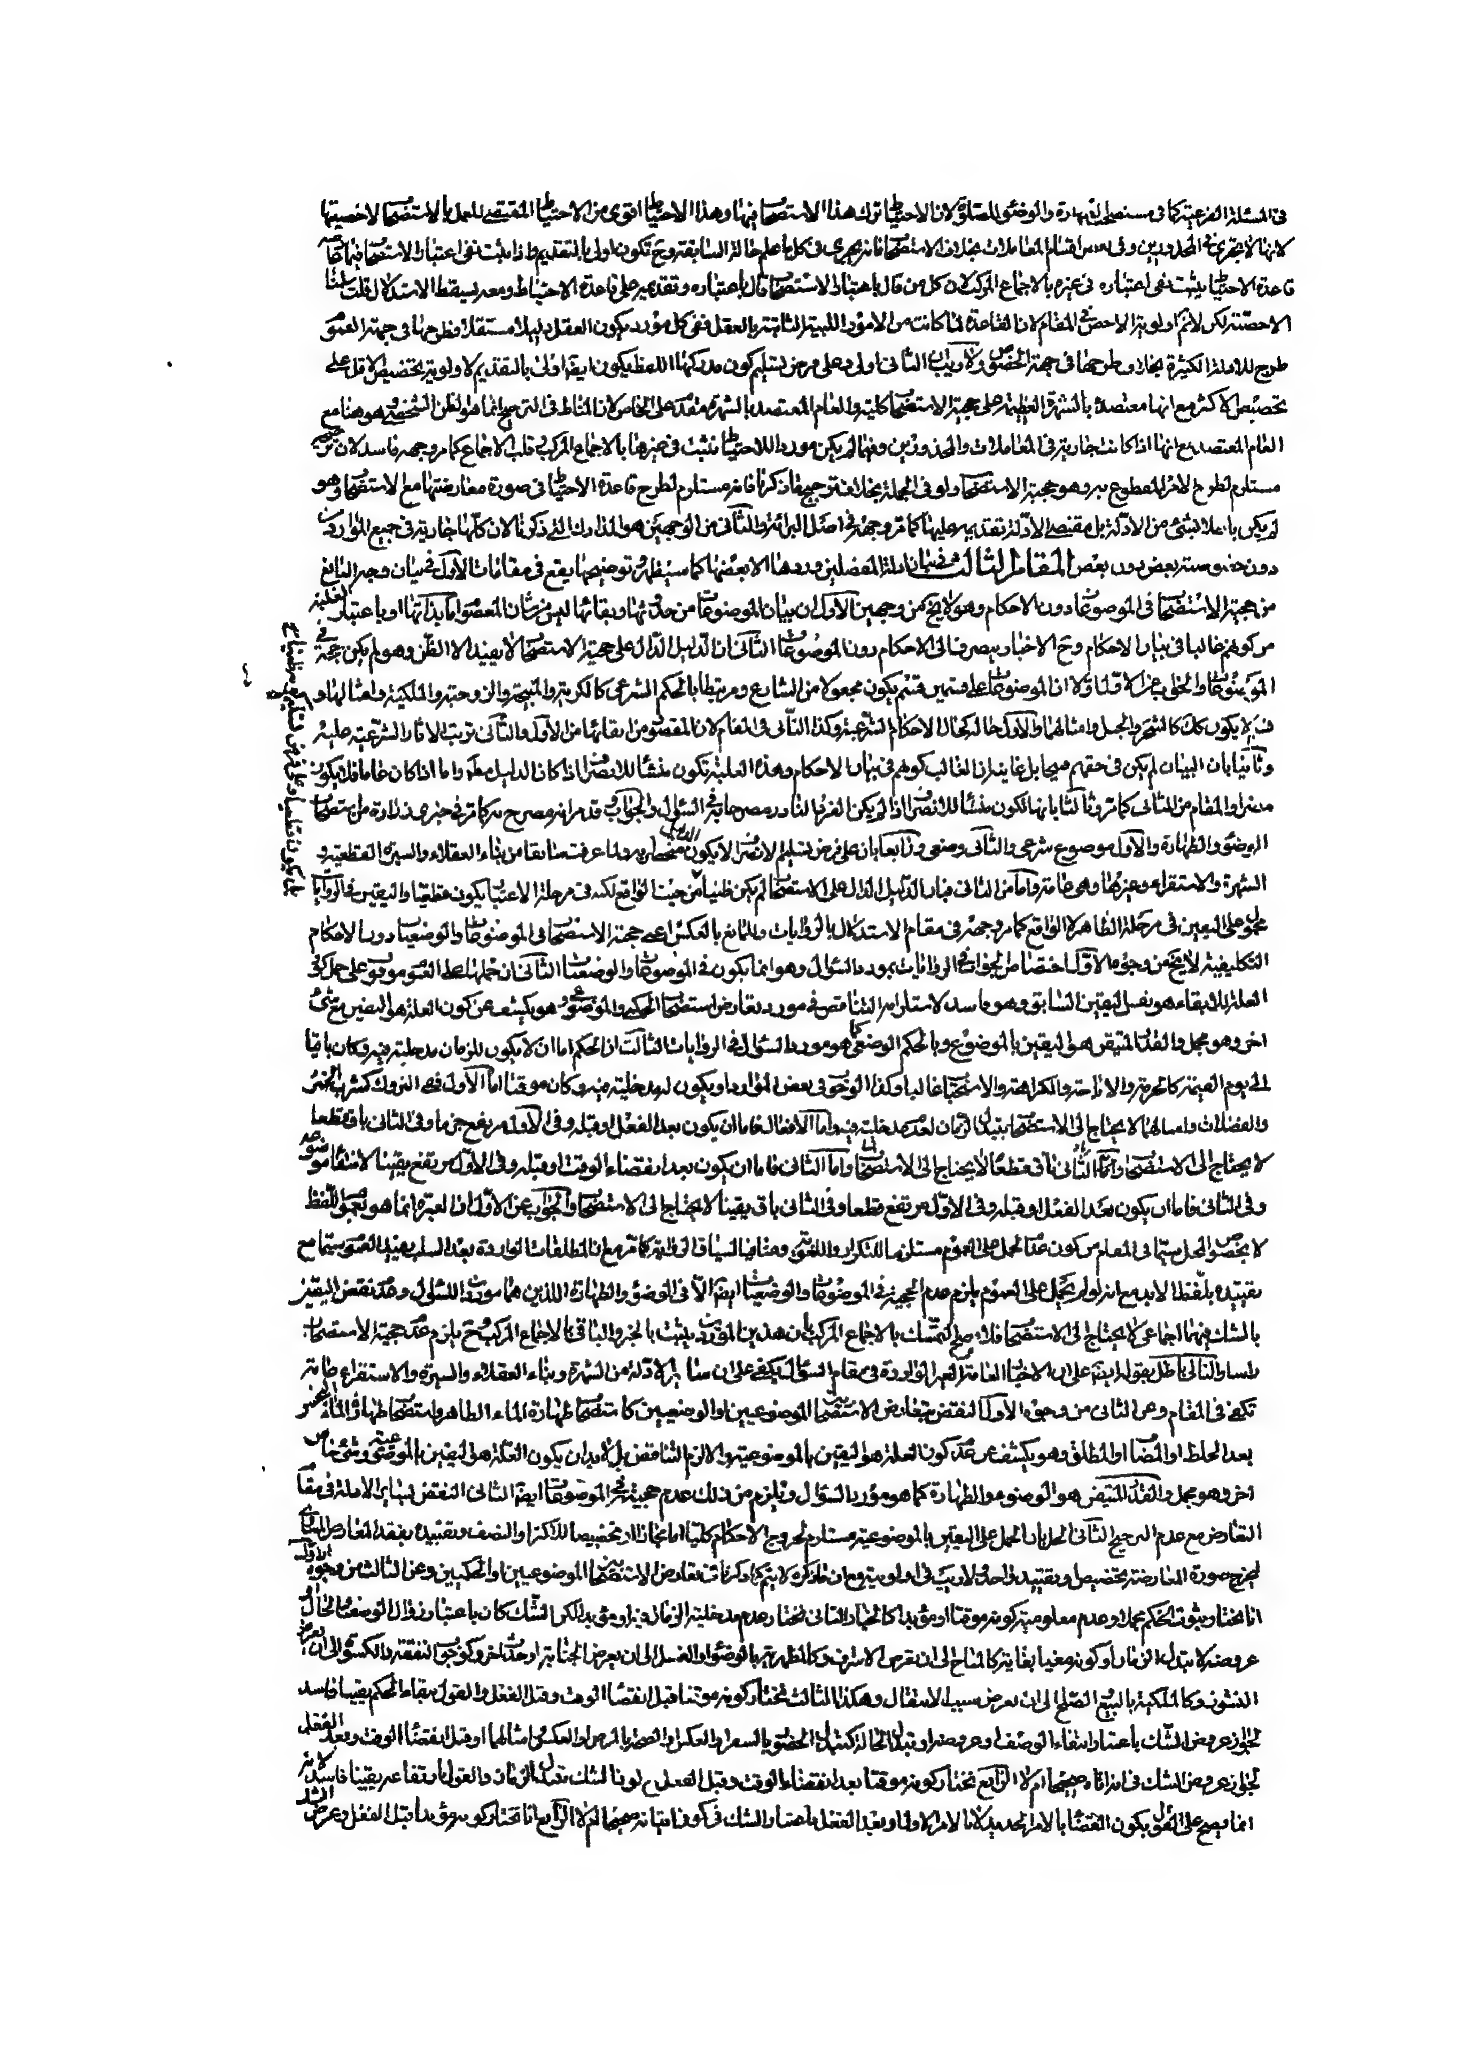 في المسئلة الفرعية كما في مستصحب الطهارة والوضوء للصلوة لان الاحتياط ترك هذا الاستصحاب فيها وهذا الاحتياط اقوى من الاحتياط المقتضي للعمل بالاستصحاب لاخصيتها
لانها لا يجري في المحذورين وفي بعض اقسام المعاملات بخلاف الاستصحاب فانه يجري في كل ما علم حالته السابقة وح تكون اولى بالتقديم فاذا ثبت نفي اعتبار الاستصحاب فيها
قاعدة الاحتياط يثبت نفي اعتباره في غيره بالاجماع المركب لان كل من قال باعتبار الاستصحاب قال باعتباره وتقديمه على قاعدة الاحتياط ومعه يسقط الاستدلال قلت سلمنا
الاخصية لكن لانم اولوية الاخص في المقام لان القاعدة لما كانت من الامور اللبية الثابتة بالعقل ففي كل مورد يكون العقل دليلا مستقلا فطرحها في جهة العموم
طرح للادلة الكثيرة بخلاف طرحها في جهة الخصوص ولا ريب ان الثاني اولى وعلى فرض تسليم كون مدركها اللفظ يكون ايضا اولى بالتقديم لاولوية تخصيص الاقل على
تخصيص الاكثر مع انها معتضدة بالشهرة العظيمة على حجية الاستصحاب كلية والعام المعتضد بالشهرة مقدم على الخاص لان المناط في الترجيح انما هو الظن الشخصي وهو هنا مع
العام المعتضد مع انها اذا كانت جارية في المعاملات والمحذورين وفيما لم يكن مورد اللاحتياط نثبت في غيرها بالاجماع المركب قلب الاجماع كما مر وجهه فاسد لان
مستلزم لطرح الامر المقطوع به وهو حجية الاستصحاب ولو في الجملة بخلاف ترجيح ما ذكرنا فانه مستلزم لطرح قاعدة الاحتياط في صورة معارضتها مع الاستصحاب وهو
لم يكن باعلا بشيء من الادلة بل مقتضى الادلة تقديمه عليها كما مر وجهه في اصل البرائة والثاني من الوجهين هو المدارك التي ذكرنا لان كلها جارية في جميع الموارد
دون خصوصية بعض دون بعض المقام الثالث في بيان ادلة المفصلين وردها الا بعضها كما سيظهر وتوضيحها يقع في مقامات الاول في بيان وجه المانع
من حجية الاستصحاب في الموضوعات دون الاحكام وهو لا يخ من وجهين الاول ان بيان الموضوعات من حدوثها وبقائها ليس من شان المعصوم اما بذاتها او باعتبار الغلبة
من كونهم غالبا في بيان الاحكام وح الاخبار ينصرف الى الاحكام دون الموضوعات الثاني ان الدليل الدال على حجية الاستصحاب لا يفيد الا الظن وهو لم يكن حجة في
الموضوعات والجواب عن الاول اولا ان الموضوعات على قسمين قسم يكون مجعولا من الشارع ومرتبطا بالحكم الشرعي كالكرية والنجاسة والزوجية والملكية وامثالها و
قسم لا يكون كك كالشجر والجبل وامثالهما والاول حاله كحال الاحكام الشرعية وكذا الثاني في المقام لان المقصود من ابقائها من الاول والثاني ترتب الاثار الشرعية عليه
وثانيا بان البيان لم يكن في حقهم قبيحا بل غايته ان الغالب كونهم في بيان الاحكام وهذه الغلبة تكون منشئا للانصراف اذا كان الدليل مط واما اذا كان عاما فلا يكون
مضرا والمقام من الثاني كما مر وثالثا بانها تكون منشئا للانصراف اذا لم يكن الفرد النادر مصرحا به في السؤال والجواب وقد مر انه مصرح به كما مر في خبري زرارة من استصحاب
الوضوء والطهارة والاول موضوع شرعي والثاني وضعي ورابعا بان على فرض تسليم الانصراف لا يكون الدليل منحصرا به لما عرفت سابقا من بناء العقلاء والسيرة القطعية و
الشهرة والاستقراء وغيرها وهي عامة واما من الثاني فبان الدليل الدال على الاستصحاب لم يكن ظنيا من حيث الواقع لكنه في مرحلة الاعتبار يكون قطعيا واليقين في الروايات
محمول على اليقين في مرحلة الظاهر لا الواقع كما مر وجهه في مقام الاستدلال بالروايات والمانع بالعكس اعني حجية الاستصحاب في الموضوعات والوضعيات دون الاحكام
التكليفية لا يخ من وجوه الاول اختصاص الجواب في الروايات بمورد السؤال وهو انما يكون في الموضوعات والوضعيات الثاني ان حملها على العموم موقوف على حمل كون
العلة للابقاء هو نفس اليقين السابق وهو فاسد لاستلزامه التناقض في مورد تعارض استصحاب الحكم والموضوع وهو يكشف عن كون العلة هو اليقين مع شيء
اخر وهو مجمل والقدر المتيقن هو اليقين بالموضوع وبالحكم الوضعي كما هو مورد السؤال في الروايات الثالث ان الحكم اما ان لا يكون للزمان مدخلية فيه وكان باقيا
الى يوم القيمة كالحرمة والاباحة والكراهة والاستحباب غالبا وكذا الوجوب في بعض الموارد او يكون له مدخلية فيه وكان موقتا اما الاول ففي التروك كشرب الخمر
والفضلات وامثالهما لا يحتاج الى الاستصحاب بتبدل الزمان لعدم مدخليته فيه واما الافعال فاما ان يكون بعد الفعل او قبله وفي الاول مرتفع جزما وفي الثاني باق قطعا
لا يحتاج الى الاستصحاب واما الثاني باق قطعا لا يحتاج الى الاستصحاب واما الثاني فاما ان يكون بعد انقضاء الوقت او قبله وفي الاول مرتفع يقينا لانتفاء موضوعه
وفي الثاني فاما ان يكون بعد الفعل او قبله وفي الاول مرتفع قطعا وفي الثاني باق يقينا لا يحتاج الى الاستصحاب والجواب عن الاول ان العبرة انما هو بعموم اللفظ
لا بخصوص المحل سيما في المقام من كون عدم الحمل على العموم مستلزما للتكرار واللغوية ومنافيا لسياق الرواية كما مر مع ان المطلقات الواردة بعد السلب يفيد العموم سيما مع
تقييده بلفظ الابد مع انه لو لم يحمل على العموم يلزم عدم الحجية في الموضوعات والوضعيات ايضا الا في الوضوء والطهارة اللذين هما مورد السؤال وعدم نقض اليقين
بالشك فيهما اجماعي لا يحتاج الى الاستصحاب فلا يصح التمسك بالاجماع المركب بان هذين الموردين يثبت بالخبر والباقي بالاجماع المركب وح يلزم عدم حجية الاستصحاب
راسا والتالي باطل بقوله ايضا على ان الاخبار العامة الغير الواردة في مقام السؤال يكفي على ان سائر الادلة من الشهرة وبناء العقلاء والسيرة والاستقراء عامة
تكفي في المقام وعن الثاني من وجوه الاول النقض بتعارض الاستصحابين الموضوعيين او الوضعيين كاستصحاب طهارة الماء الطاهر واستصحاب طهارة الماء
بعد الخلط او المضاف او المطلق وهو يكشف عن عدم كون العلة هو اليقين بالموضوعية والا لزم التناقض بل لابد ان يكون العلة هو اليقين بالموضوعية وشيء خاص
اخر وهو مجمل والقدر المتيقن هو الوضوء والطهارة كما هو مورد السؤال ويلزم من ذلك عدم حجيته في الموضوعات ايضا الثاني النقض بسائر الادلة في مقام
التعارض مع عدم الترجيح الثاني الحل بان الحمل على اليقين بالموضوعية مستلزم لخروج الاحكام كليا اما مجازا او تخصيصا للاكثر او النصف وتقييده بفقد المعارض
يخرج صورة المعارضة تخصيص او تقييد واحد ولا ريب في اولويته مع ان ما ذكره لا يتم كما ذكرنا من تعارض الاستصحابين الموضوعيين او الحكميين وعن الثالث من وجوه الاول
انا نختار ثبوت الحكم مجملا وعدم معلومية كونه موقتا او مؤبدا كالخيار الثاني نختار عدم مدخلية الزمان فيه او مؤبد لكن الشك كان باعتبار زوال الوصف
عروضه لا بتبدل الزمان او كونه مغيا بغاية كالمباح الى ان يعرض الاسراف وكالطهارة بالوضوء او الغسل الى ان يعرض الجنابة او حدث اخر وكوجوب النفقة والكسوة الى ان يعرض
النشوز وكالملكية بالبيع او الصلح الى ان يعرض سبب الانتقال وهكذا الثالث نختار كونه موقتا قبل انقضاء الوقت وقبل الفعل والقول ببقاء الحكم يقينا فاسد
لجواز عروض الشك باعتبار انتفاء الوصف او عروضه او تبدل الحالة كتبدل الحضر بالسفر او العكس والصحة بالمرض او العكس وامثالهما او قبل انقضاء الوقت وبعد الفعل
لجواز عروض الشك في انه اتاه صحيحا ام لا الرابع نختار كونه موقتا بعد انقضاء الوقت وقبل الفعل لو كان الشك تبدل الزمان والقول بارتفاعه يقينا فاسد لانه
انما يصح على القول بكون القضاء بالامر الجديد لا بالامر الاول او بعد الفعل باعتبار الشك في كون اتيانه صحيحا ام لا الرابع انا نختار كونه مؤبدا قبل الفعل وعرض الشك